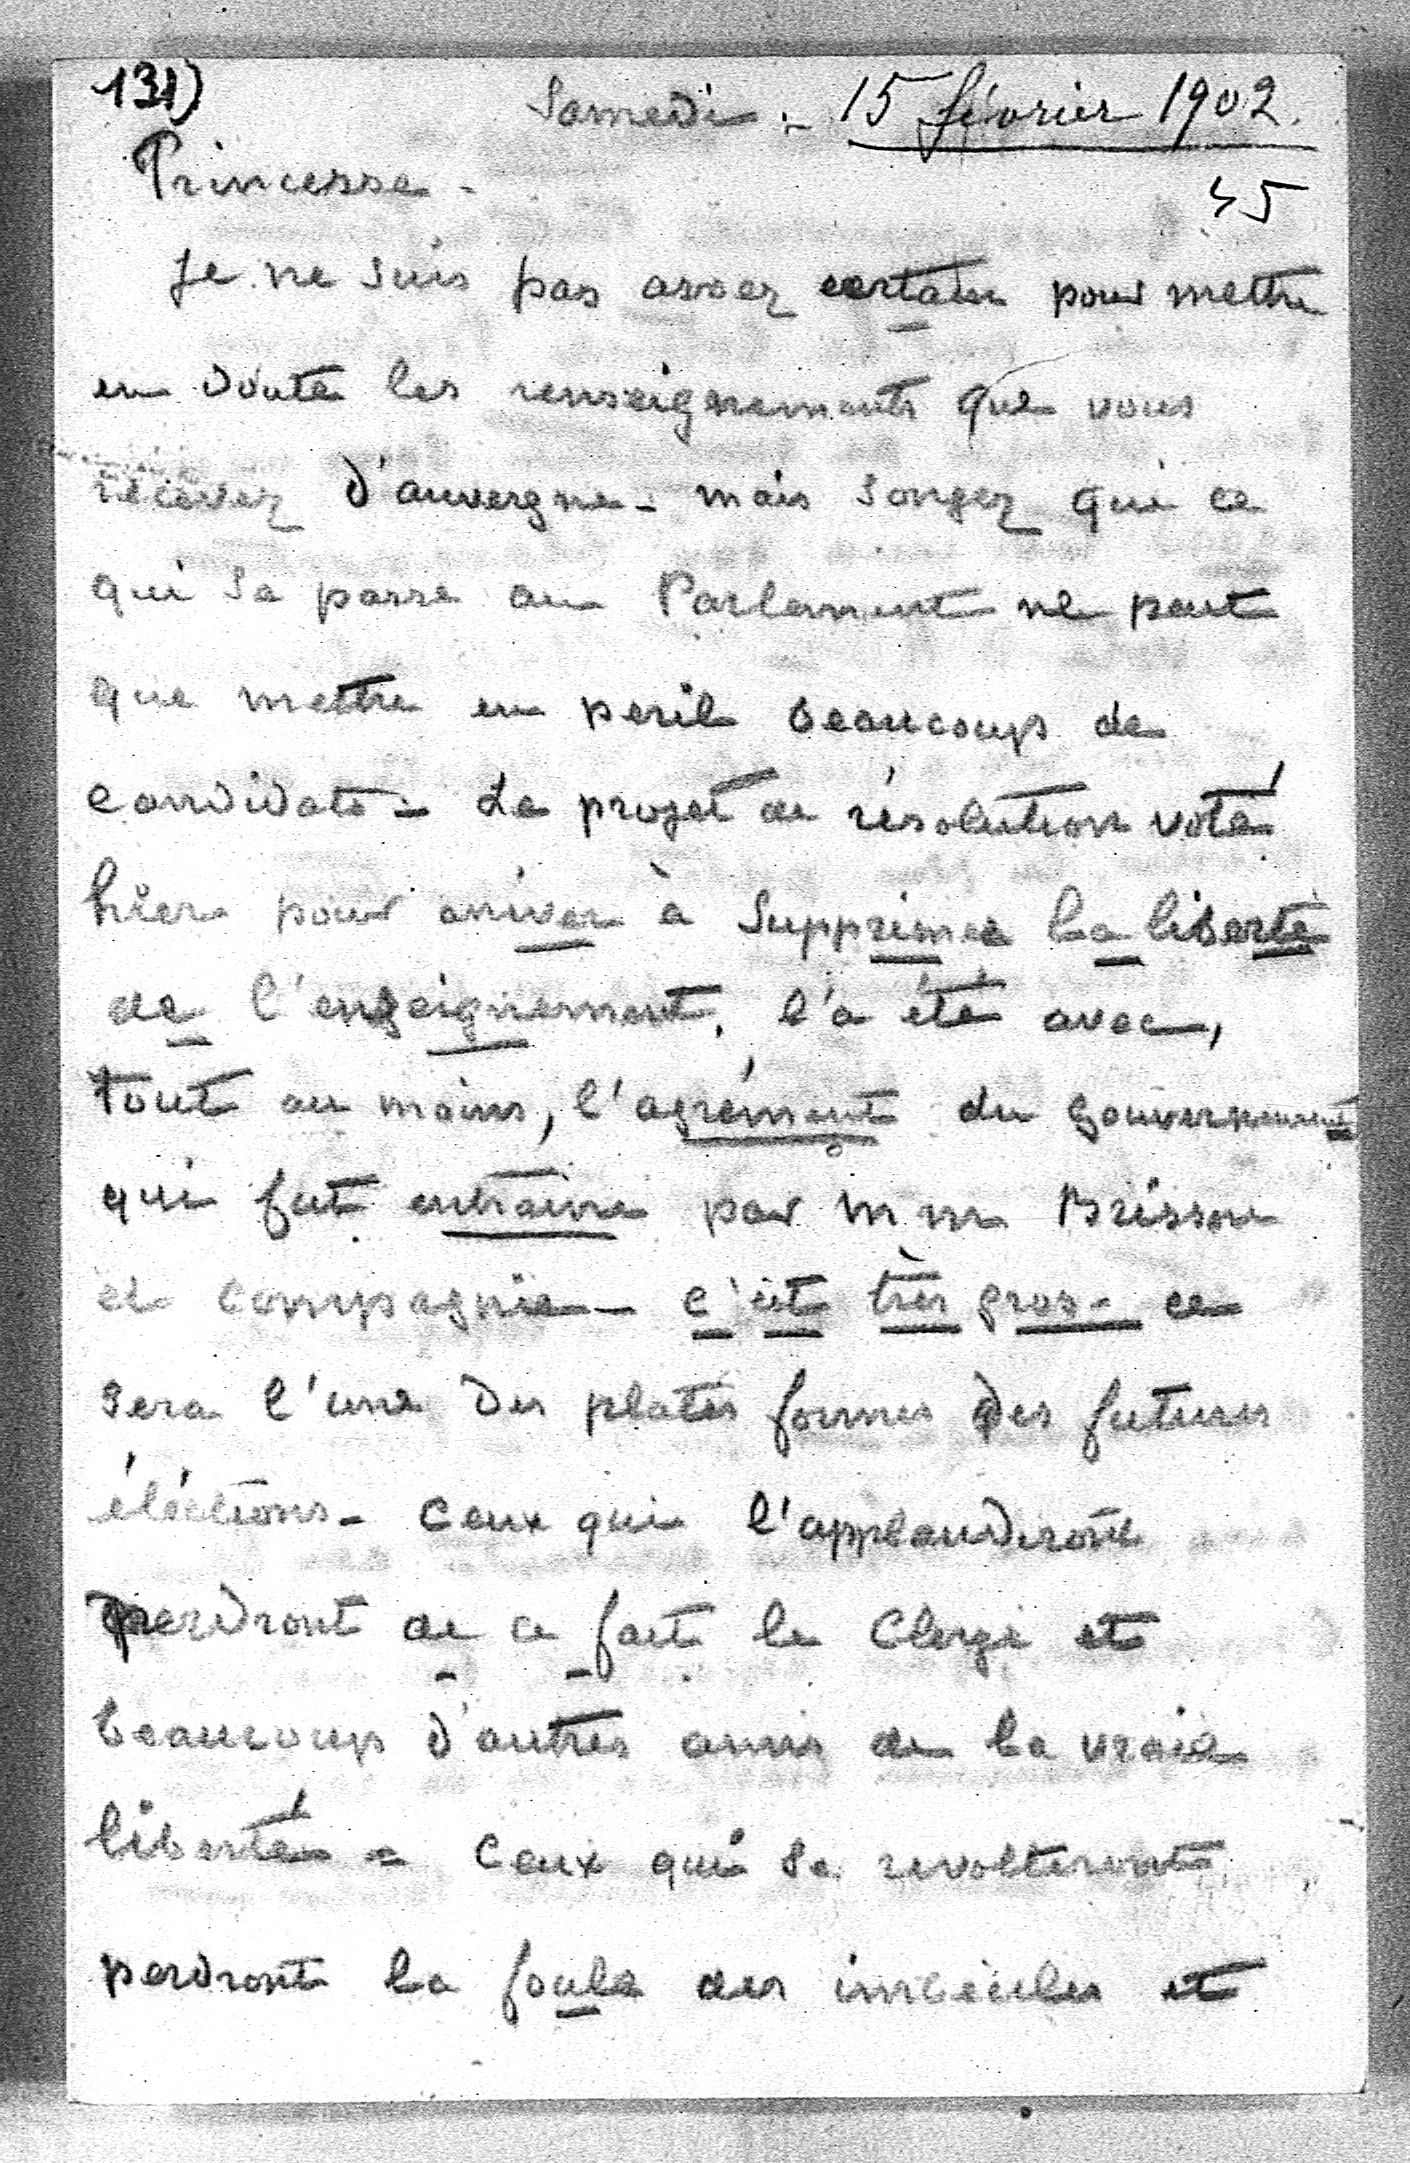 131)
Samedi - 15 février 1902.
45
Princesse -
Je ne suis pas assez certain pour mettre
en doute les renseignements que vous
recevez d'auvergne - mais songez que ce
qui se passe au Parlement ne peut
que mettre en peril beaucoup de
candidats - Le projet de résolution voté
hier pour arriver à supprimer la liberté
de l'enseignement, l'a été avec,
tout au moins, l'agrément du gouvernement
qui fut entrainé par M.M. Brisson
et compagnie - c'est très gros - ce
sera l'une des plates formes des futures
éléctions - Ceux qui l'applaudiront
perdront de ce fait le Clergé et
beaucoup d'autres amis de la vraie
liberté - Ceux qui se revolteront
perdront la foule des imbéciles et